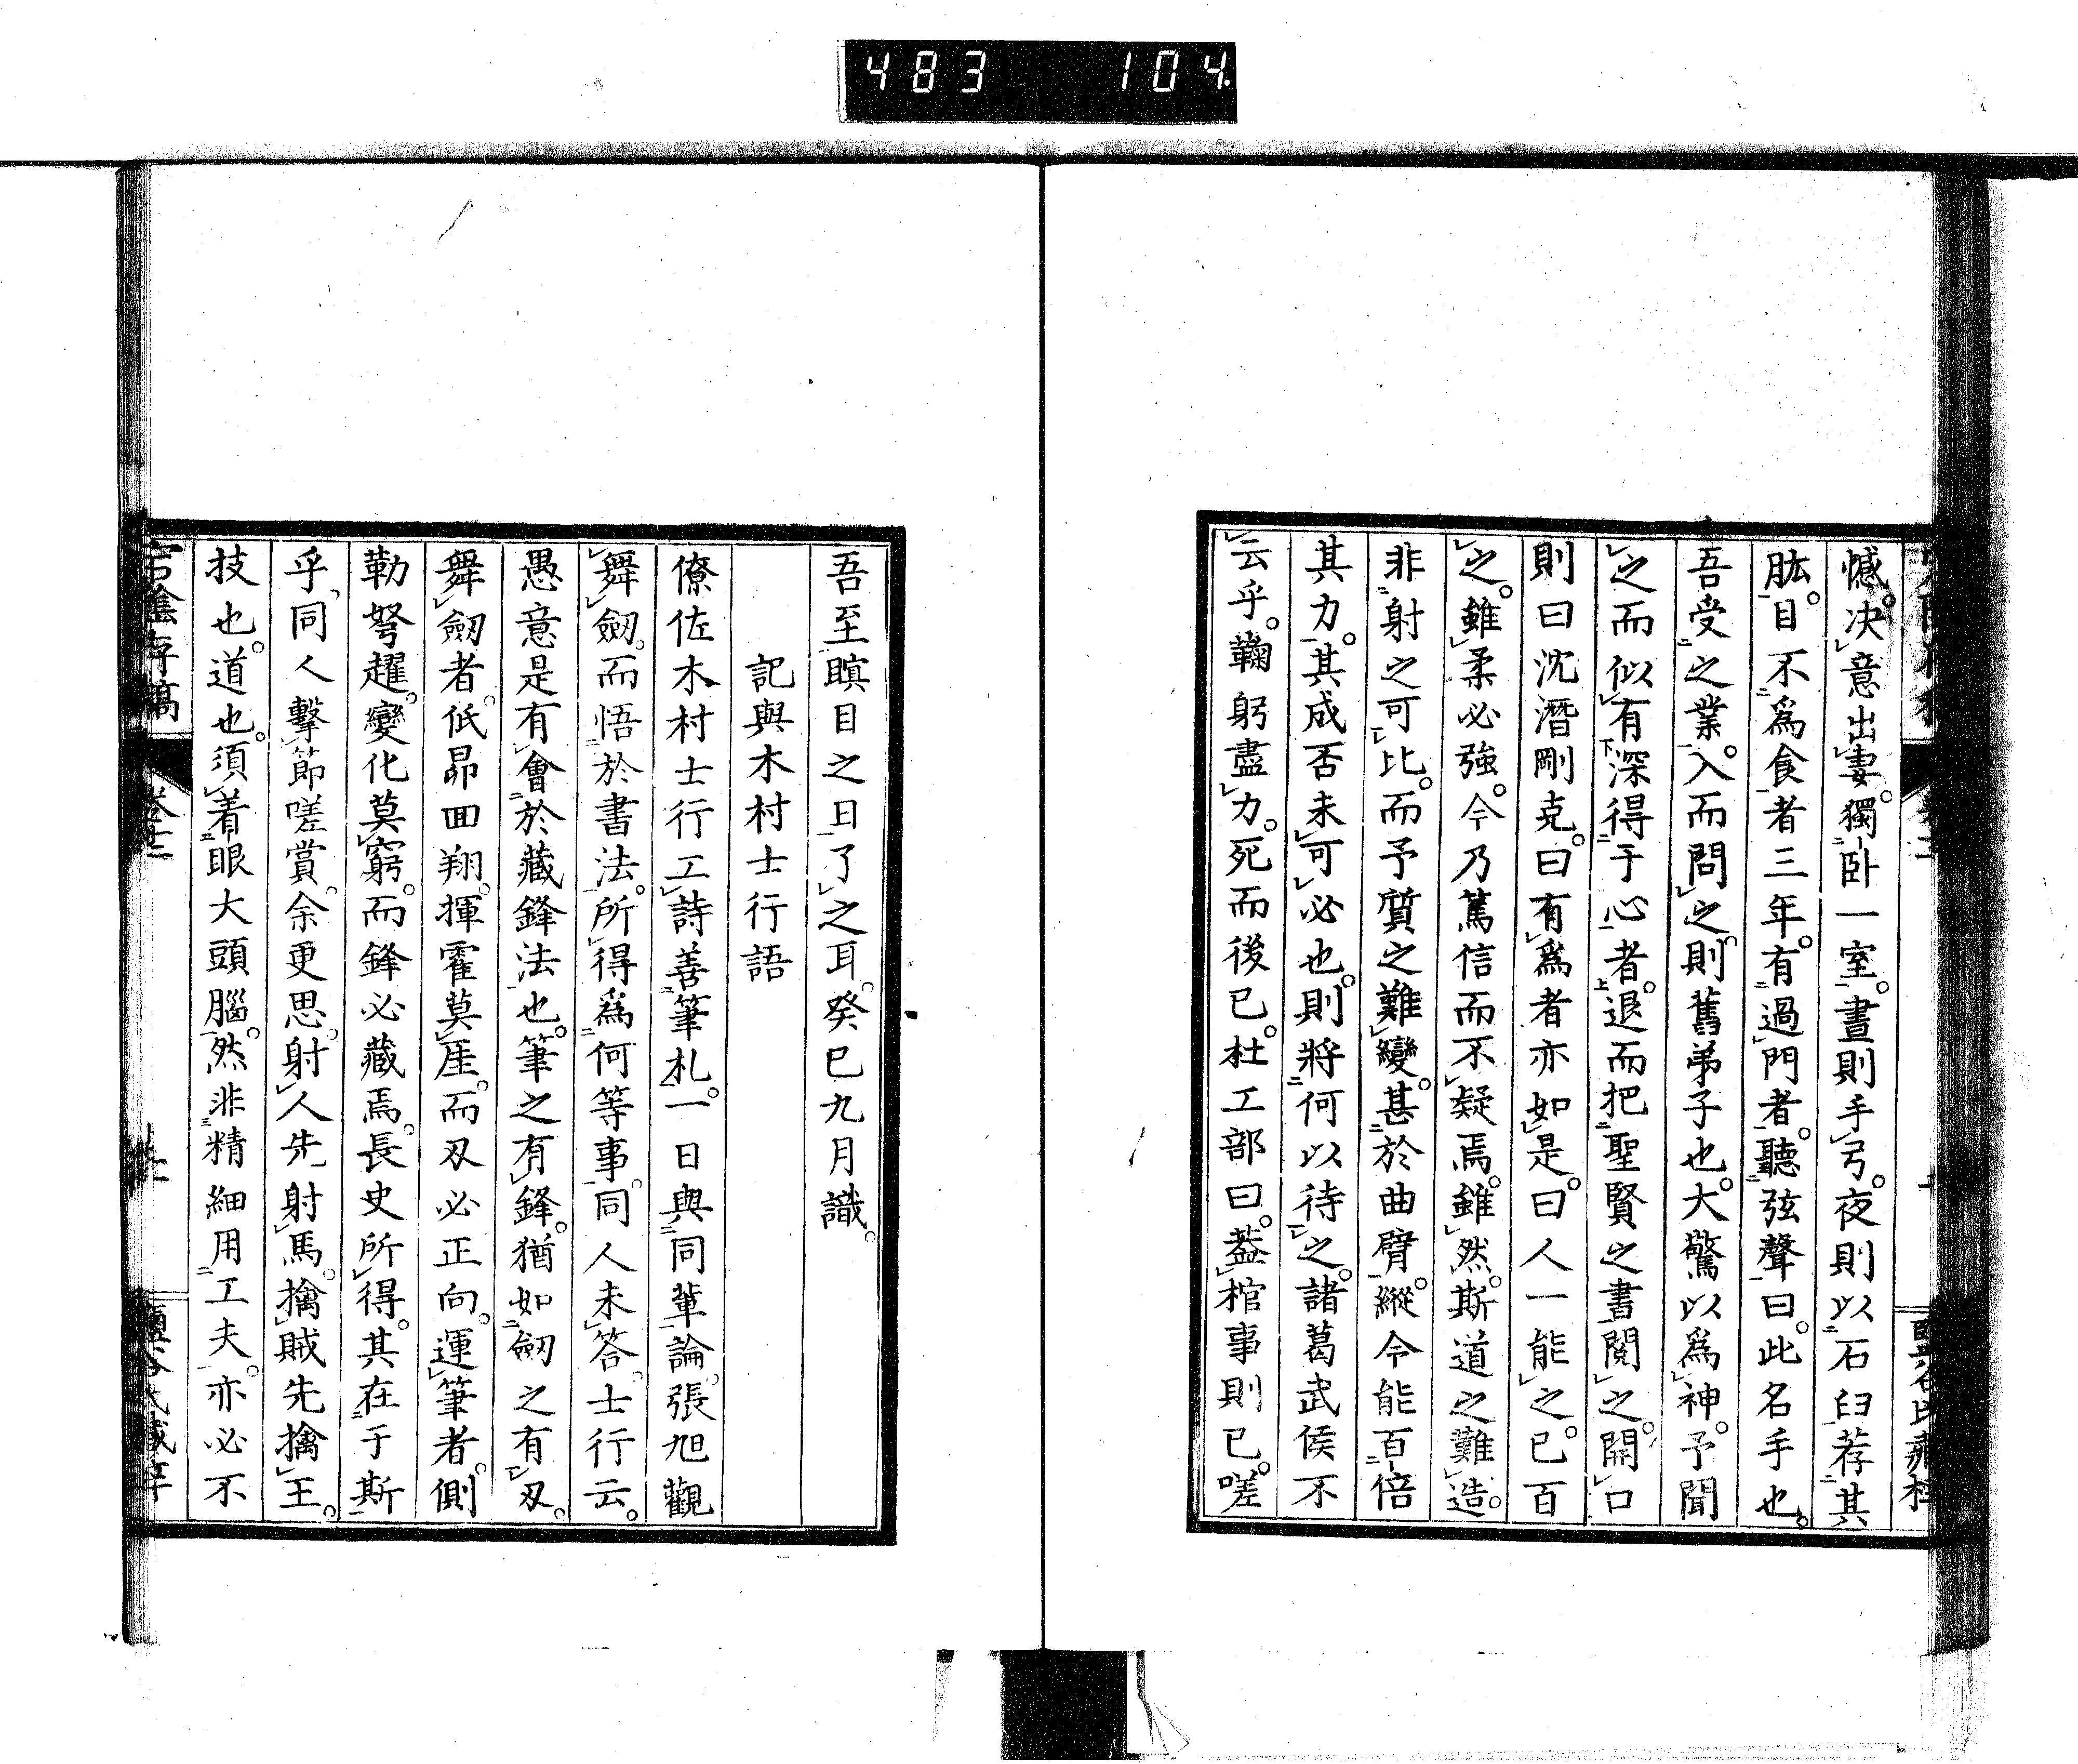 483 104
憾。决意出妻。獨卧一室。晝則手弓。夜則以石臼荐其
肱。目不爲食者三年。有過門者。聽弦聲曰。此名手也。
吾受之業。入而問之。則舊弟子也。大驚以爲神。予聞
之而似有深得于心者。退而把聖賢之書閱之。開口
則曰沈潛剛克。曰有爲者亦如是。曰人一能之。已百
之。雖柔必強。今乃篤信而不疑焉。雖然。斯道之難造。
非射之可比。而予質之難變。甚於曲臂。縱令能百倍
其力。其成否未可必也。則將何以待之。諸葛武侯不
云乎。鞠躬盡力。死而後已。杜工部曰。蓋棺事則已。嗟
吾至瞑目之日了之耳。癸巳九月識。
記與木村士行語
僚佐木村士行工詩善筆札。一日與同輩論張旭觀
舞劒。而悟於書法。所得爲何等事。同人未答。士行云。
愚意是有會於藏鋒法也。筆之有鋒。猶如劒之有刄。
舞劒者。低昻囬翔。揮霍莫厓。而刄必正向。運筆者。側
勒努趯。變化莫窮。而鋒必藏焉。長史所得。其在于斯
乎。同人擊節嗟賞。余更思。射人先射馬。擒賊先擒王。
技也。道也。須着眼大頭腦。然非精細用工夫。亦必不
宕陰存稿